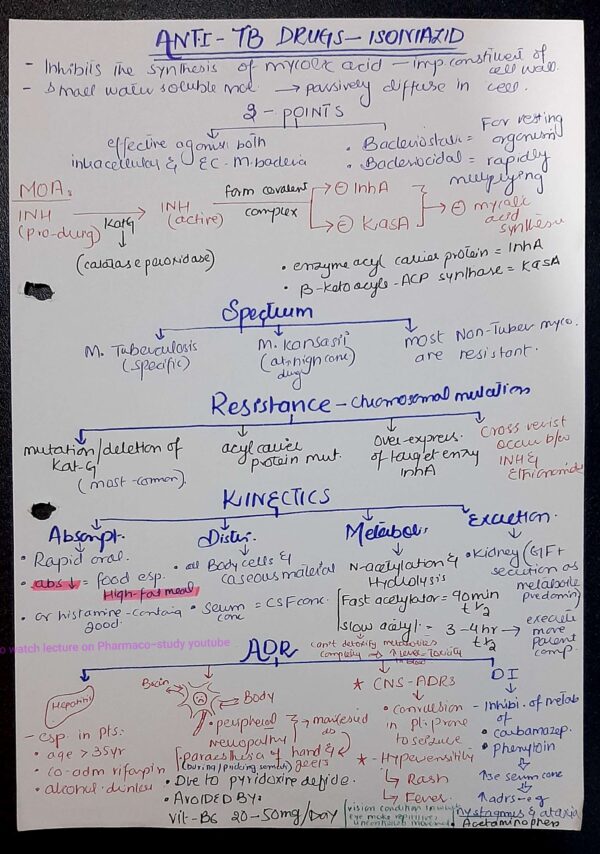 ANTI-TB DRUGS-ISONIAZID
- Inhibits the synthesis of mycolic acid - imp. constituent of cell wall.
- Small water soluble mol. → passively diffuse in cell.
2-POINTS
effective against both
intracellular & EC-M.bacteria
• Bacteriostatic = For resting organism
• Bacteriocidal = rapidly multiplying
MOA:
INH (Pro-drug) KatG → INH (active) form covalent complex → ⊖ InhA
→ ⊖ KasA → ⊖ mycolic acid synthesis
(catalase peroxidase)
• enzyme acyl carrier protein = InhA
• β-ketoacyls-ACP synthase = KasA
Spectrum
M. Tuberculosis (specific)
M. Kansasii (at high conc drug)
most Non-Tuber myco. are resistant.
Resistance - chromosomal mutation
mutation/deletion of Kat-G (most-common).
acyl carrier protein mut.
Over-express. of target enzy InhA
Cross resist occur b/w INH &
KINECTICS
Absorpt.
• Rapid oral.
• abs ↓ = food esp. High-fat meal
• or histamine-containg
Distri.
• all Body cells & caseous material
• Serum conc = CSF conc.
Metabol.
N-acetylation & Hydrolysis
Fast acetylator = 90min t½
Slow acetyl. = 3-4hr t½
can't detoxify metabolites completely →
Excretion.
• Kidney (GF + secretion as metabolite predomin)
→ execrete more Parent comp.
o watch lecture on Pharmaco-study youtube
ADR
Hepatitis
- esp. in pts:
• age > 35yr
• co-adm rifampin
• alcohol-
Brain
Body
• peripheral neuropathy } → manifested as
paraesthesia of hand & feets
• Due to pyridoxine
• AVOIDED BY:
Vit-B6 20-50mg/DAY
★ CNS-ADRs
• convulsion in pt. prone to seizure
★ -Hypersentitity
↳ Rash
↳ Fever.
DI
- Inhibi. of metab of
• carbamazep.
• phenytoin
↓
↑se serum conc
↓
↑adrs-e.g
nystagmus & ataxia
• Acetaminophen